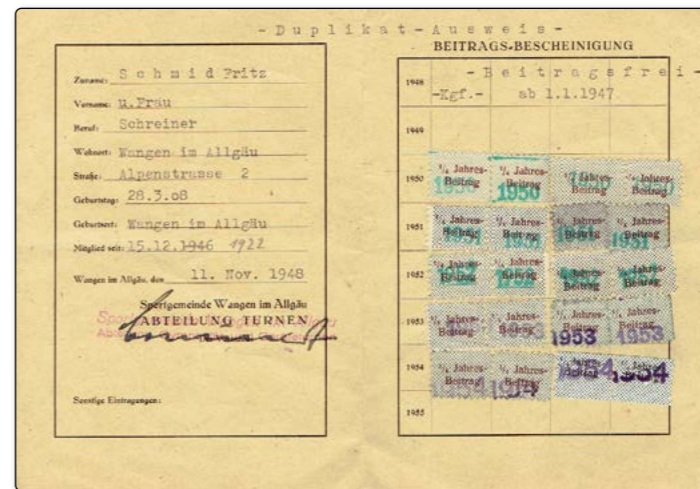 -Duplikat-Ausweis-
Zuname: Schmid Fritz
Vorname: u.Frau
Beruf: Schreiner
Wohnort: Wangen im Allgäu
Straße: Alpenstrasse 2
Geburtstag: 28.3.08
Geburtsort: Wangen im Allgäu
Mitglied seit: 15.12.1946 1922
Wangen im Allgäu, den 11. Nov. 1948
Sportgemeinde Wangen im Allgäu
ABTEILUNG TURNEN
Sonstige Eintragungen:
BEITRAGS-BESCHEINIGUNG
1948 -Beitragsfrei-
-Kgf.- ab 1.1.1947
1949
1950 ¼ Jahres-Beitrag 1950 ¼ Jahres-Beitrag 1950 ¼ Jahres-Beitrag 1950 ¼ Jahres-Beitrag 1950
1951 ¼ Jahres-Beitrag 1951 ¼ Jahres-Beitrag 1951 ¼ Jahres-Beitrag 1951 ¼ Jahres-Beitrag 1951
1952 ¼ Jahres-Beitrag 1952 ¼ Jahres-Beitrag 1952 ¼ Jahres-Beitrag 1952 ¼ Jahres-Beitrag 1952
1953 ¼ Jahres-Beitrag 1953 ¼ Jahres-Beitrag 1953 ¼ Jahres-Beitrag 1953 ¼ Jahres-Beitrag 1953
1954 ¼ Jahres-Beitrag 1954 ¼ Jahres-Beitrag 1954 ¼ Jahres-Beitrag 1954 ¼ Jahres-Beitrag 1954
1955